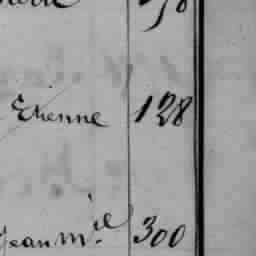 Etienne 128
Jean M.el 300